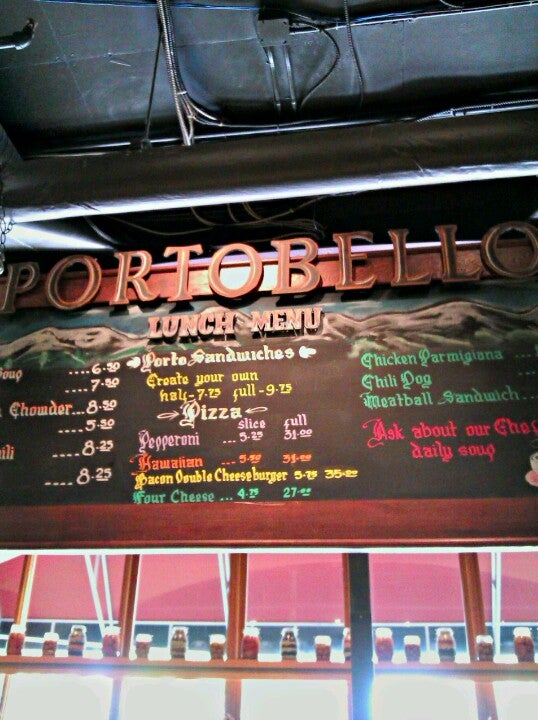 PORTOBELLO
LUNCH MENU
Soup ....6.50
....7.50
Chowder...8.50
....5.50
....8.25
....8.25
Porto Sandwiches
Create your own
half-7.75 full-9.75
Pizza
slice full
Pepperoni ...5.25 31.00
Hawaiian ...5.50 31.00
Bacon Double Cheeseburger 5.75 35.00
Four Cheese ...4.75 27.00
Chicken Parmigiana ...
Chili Dog
Meatball Sandwich...
Ask about our Chef
daily soup